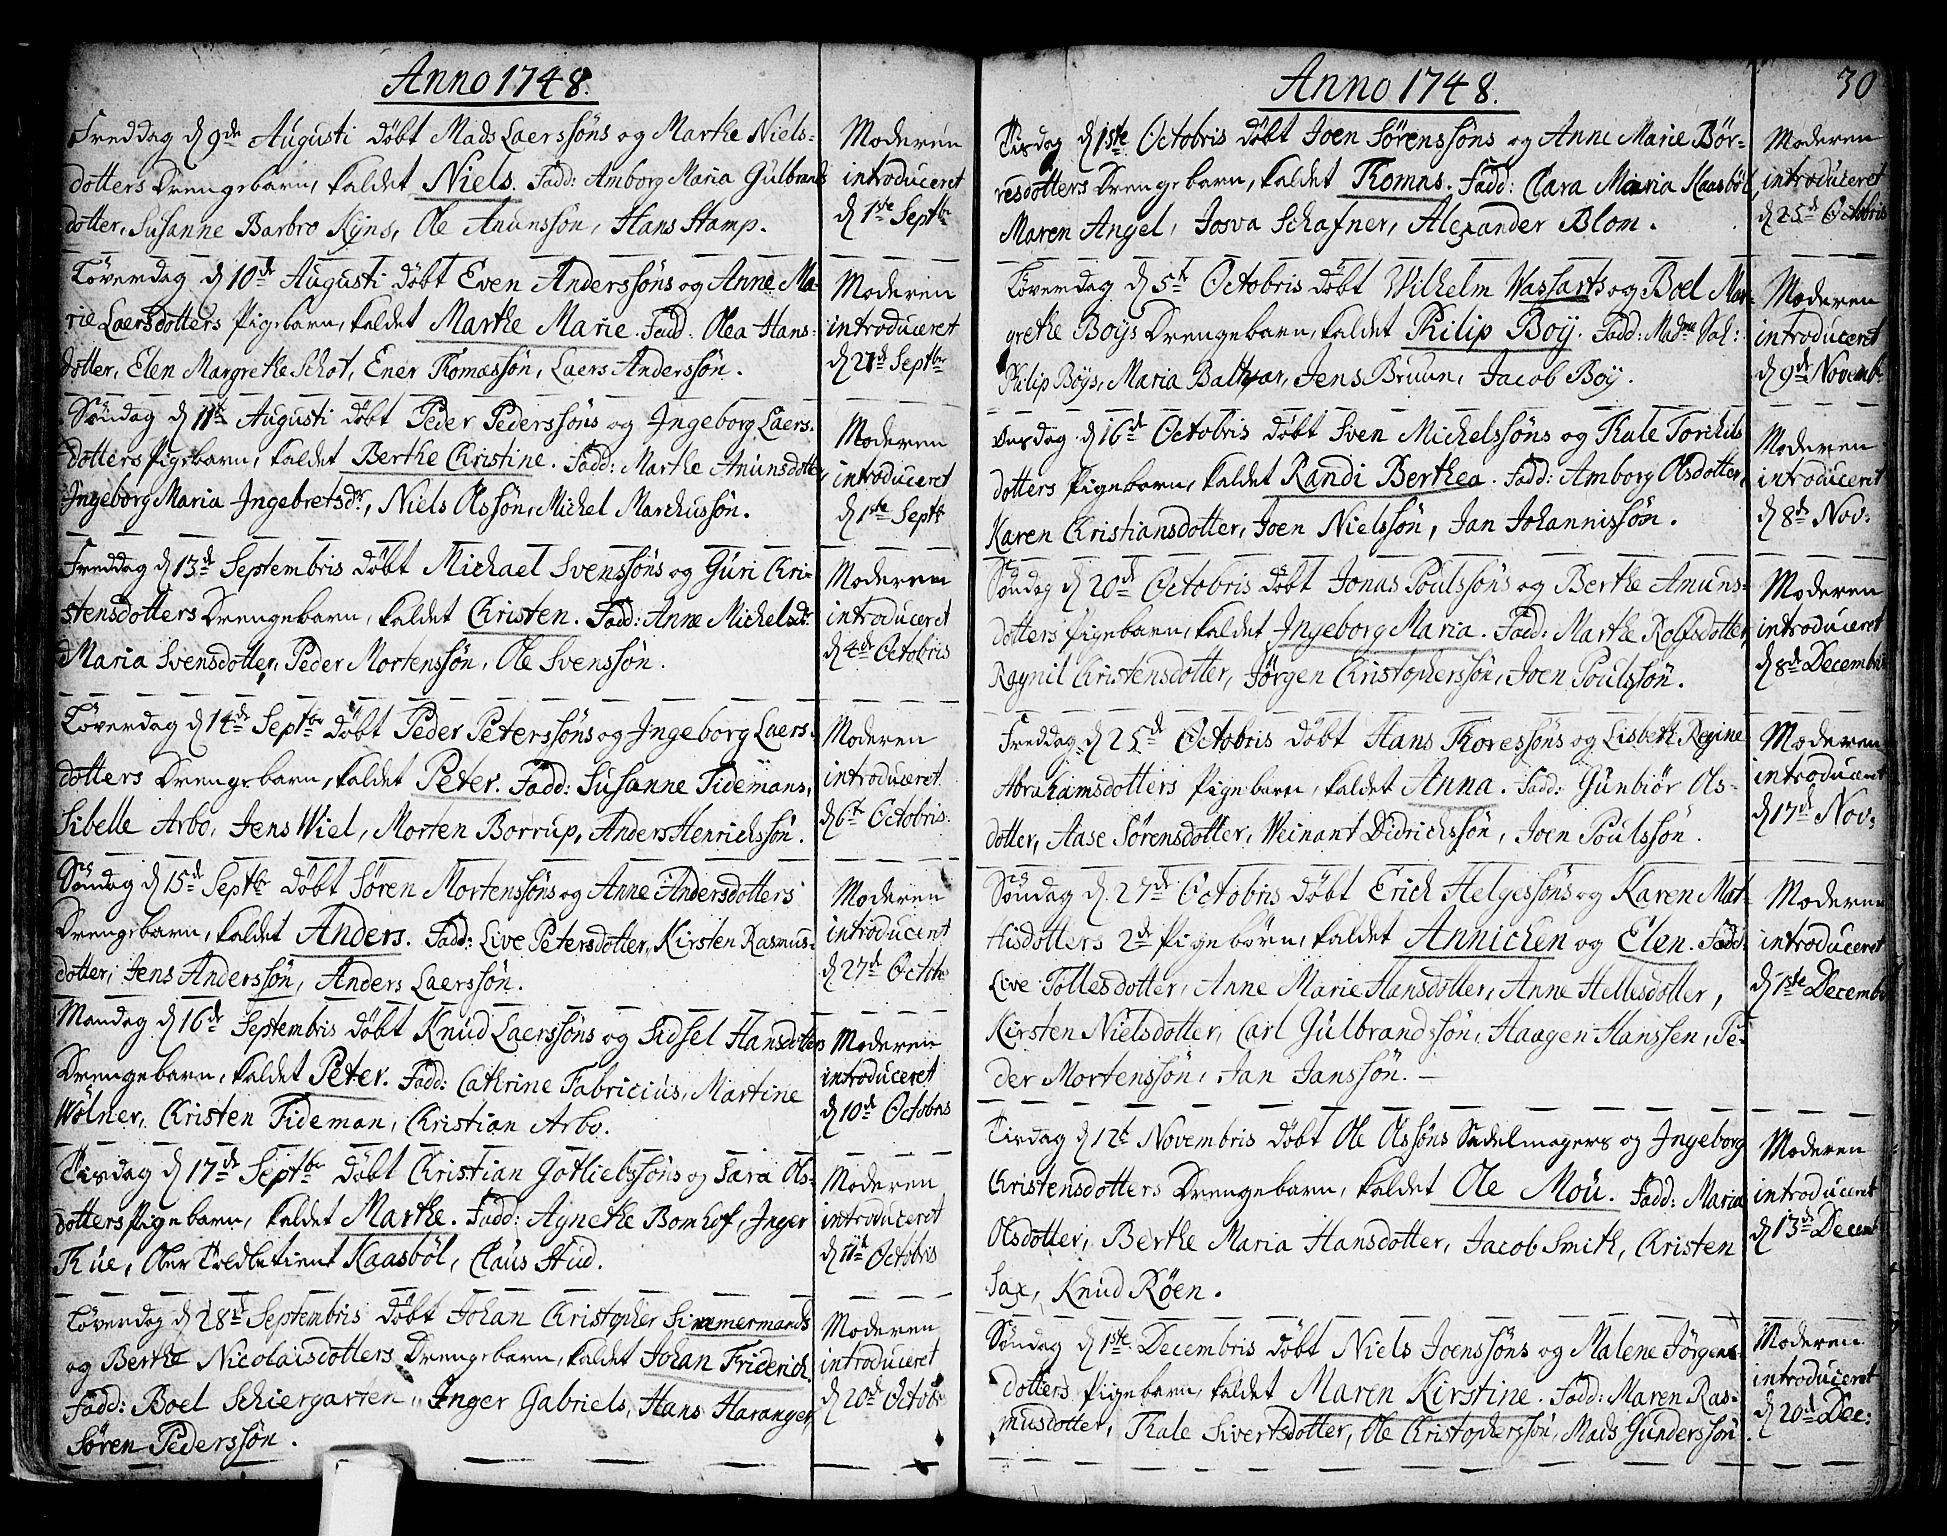 Anno 1748.
Freddag d 9de Augusti døbt Mads Laerssøns og Marthe Niels-
dotters Drengebarn, kaldet Niels. Fadd: Amborg Maria Gulbrands
dotter, Susanne Barbro Kyns, Ole Amunssøn, Hans Hamp.
Moderen
introduceret
d 1ste Septbr
Løverdag d 10de Augusti døbt Even Anderssøns og Anne Ma-
rie Laersdotters Pigebarn, kaldet Marthe Marie. Fadd. Olea Hans-
dotter, Elen Margrethe Schot, Ener Thomassøn, Laers Anderssøn.
Moderen
introduceret
d 21de Septbr
Søndag d 11te Augusti døbt Peder Pederssøns og Ingeborg Laers-
dotters Pigebarn, kaldet Berthe Christine. Fadd: Marthe Amunsdotter,
Ingeborg Maria Ingebretsdr, Niels Olssøn, Michel Marchussøn.
Moderen
introduceret
d 1ste Septbr
Freddag d 13de Septembris døbt Michael Svenssøns og Guri Chri-
stensdotters Drengebarn, kaldet Christen. Fadd: Anne Michelsdr
Maria Svensdotter, Peder Mortenssøn, Ole Svenssøn.
Moderen
introduceret
d 4de Octobris
Løverdag d 14de Septbr døbt Peder Peterssøns og Ingeborg Laers-
dotters Drengebarn, kaldet Peter. Fadd: Susanne Tidemans,
Sibelle Arbo, Jens Wiel, Morten Borrup, Anders Henrichssøn.
Moderen
introduceret
d 6te Octobris.
Søndag d 15de Septbr døbt Søren Mortenssøns og Anne Andersdotters
Drengebarn, kaldet Anders. Fadd: Live Petersdotter, Kirsten Rasmus-
dotter, Jens Anderssøn, Anders Laerssøn.
Moderen
introduceret
d 27de Octobr
Mandag d 16de Septembris døbt Knud Laerssøns og Sidsel Hansdotters
Drengebarn, kaldet Peter. Fadd: Cathrine Fabricius, Martine
Wølner, Christen Tideman, Christian Arbo.
Moderen
introduceret
d 10de Octobris
Tisdag d 17de Septbr døbt Christian Gotliebssøns og Sara Ols-
dotters Pigebarn, kaldet Marthe. Fadd: Agnethe Bomhof, Inger
Thue, Ober Toldbetient Kaasbøl, Claus Hud.
Moderen
introduceret
d 11te Octobris
Løverdag d 28de Septembris døbt Johan Christopher Simmermands
og Berthe Nicolaisdotters Drengebarn, kaldet Johan Friderich.
Fadd: Boel Schiergarten, Inger Gabriels, Hans Haranger,
Søren Pederssøn.
Moderen
introduceret
d 20de Octobr
Anno 1748.
30
Tisdag d 1ste Octobris døbt Joen Sørenssøns og Anne Marie Bør-
resdotters Drengebarn, kaldet Thomas. Fadd: Clara Maria Kaasbøl,
Maren Angel, Josva Schafner, Alexander Blom.
Moderen
introduceret
d 25de Octobris
Løverdag d 5te Octobris døbt Wilhelm Wassarts og Boel Mar-
grethe Boys Drengebarn, kaldet Philip Boy. Fadd: Madme Sal:
Philip Boys, Maria Baltzar, Jens Bruun, Jacob Boy.
Moderen
introduceret
d 9de Novembr
Onsdag d 16de Octobris døbt Sven Michelssøns og Thale Torchils
dotters Pigebarn, kaldet Randi Berthea. Fadd: Amborg Olsdotter,
Karen Christiansdotter, Joen Nielssøn, Jan Johannissøn.
Moderen
introduceret
d 8de Nov:
Søndag d 20de Octobris døbt Jonas Poulssøns og Berthe Amuns-
dotters Pigebarn, kaldet Ingeborg Maria. Fadd: Marthe Rolfsdotter,
Ragnil Christensdotter, Jørgen Christopherssøn, Joen Poulssøn.
Moderen
introduceret
d 8de Decembris
Freddag d 25de Octobris døbt Hans Thoressøns og Lisbeth Regine
Abrahamsdotters Pigebarn, kaldet Anna. Fadd: Gunbiør Ols-
dotter, Aase Sørensdotter, Weinant Didrichssøn, Joen Poulssøn.
Moderen
introduceret
d 17de Nov:
Søndag d. 27de Octobris døbt Erich Helgessøns og Karen Mat-
hisdotters 2de Pigebørn, kaldet Annichen og Elen. Fadd:
Live Tollesdotter, Anne Marie Hansdotter, Anne Hellesdotter,
Kirsten Nielsdotter, Carl Gulbrandssøn, Haagen Hanssen, Pe-
der Mortenssøn, Jan Janssøn.
Moderen
introduceret
d 1ste Decembr
Tisdag d 12te Novembris døbt Ole Olssøns Sadelmagers og Ingeborg
Christensdotters Drengebarn, kaldet Ole Mou. Fadd: Maria
Olsdotter, Berthe Maria Hansdotter, Jacob Smith, Christen
Sax, Knud Røen.
Moderen
introduceret
d 13de Decemb
Søndag d 1ste Decembris døbt Niels Joenssøns og Malene Jørgens-
dotters Pigebarn, kaldet Maren Kirstine. Fadd: Maren Ras-
musdotter, Thale Sivertsdotter, Ole Christopherssøn, Mads Gunderssøn.
Moderen
introduceret
d 20de Dec: